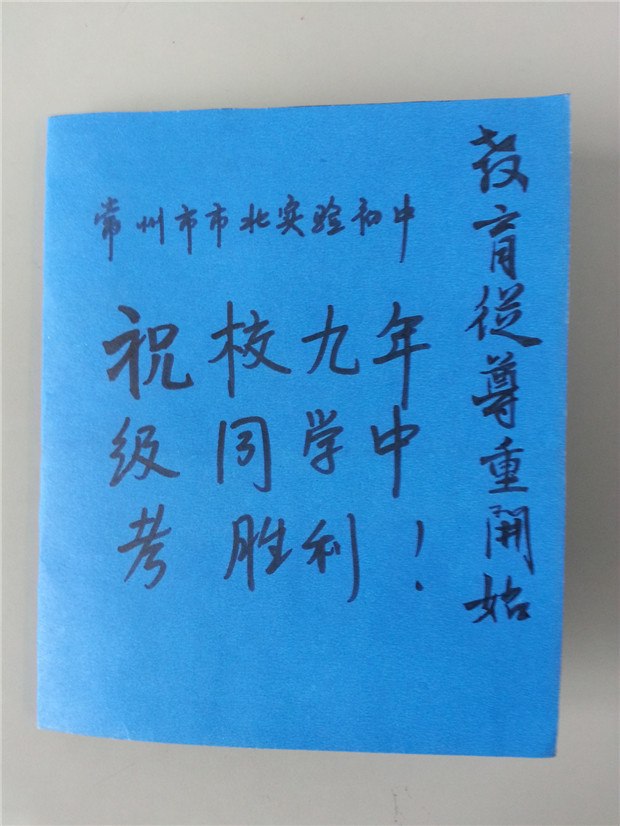 常州市市北实验初中
祝校九年
级同学中
考胜利！
教育從尊重開始